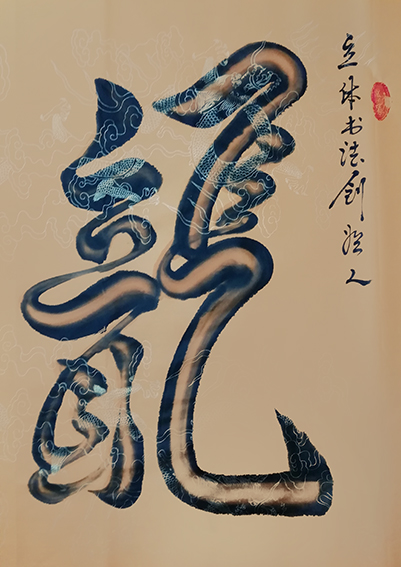 龍
立体书法创始人